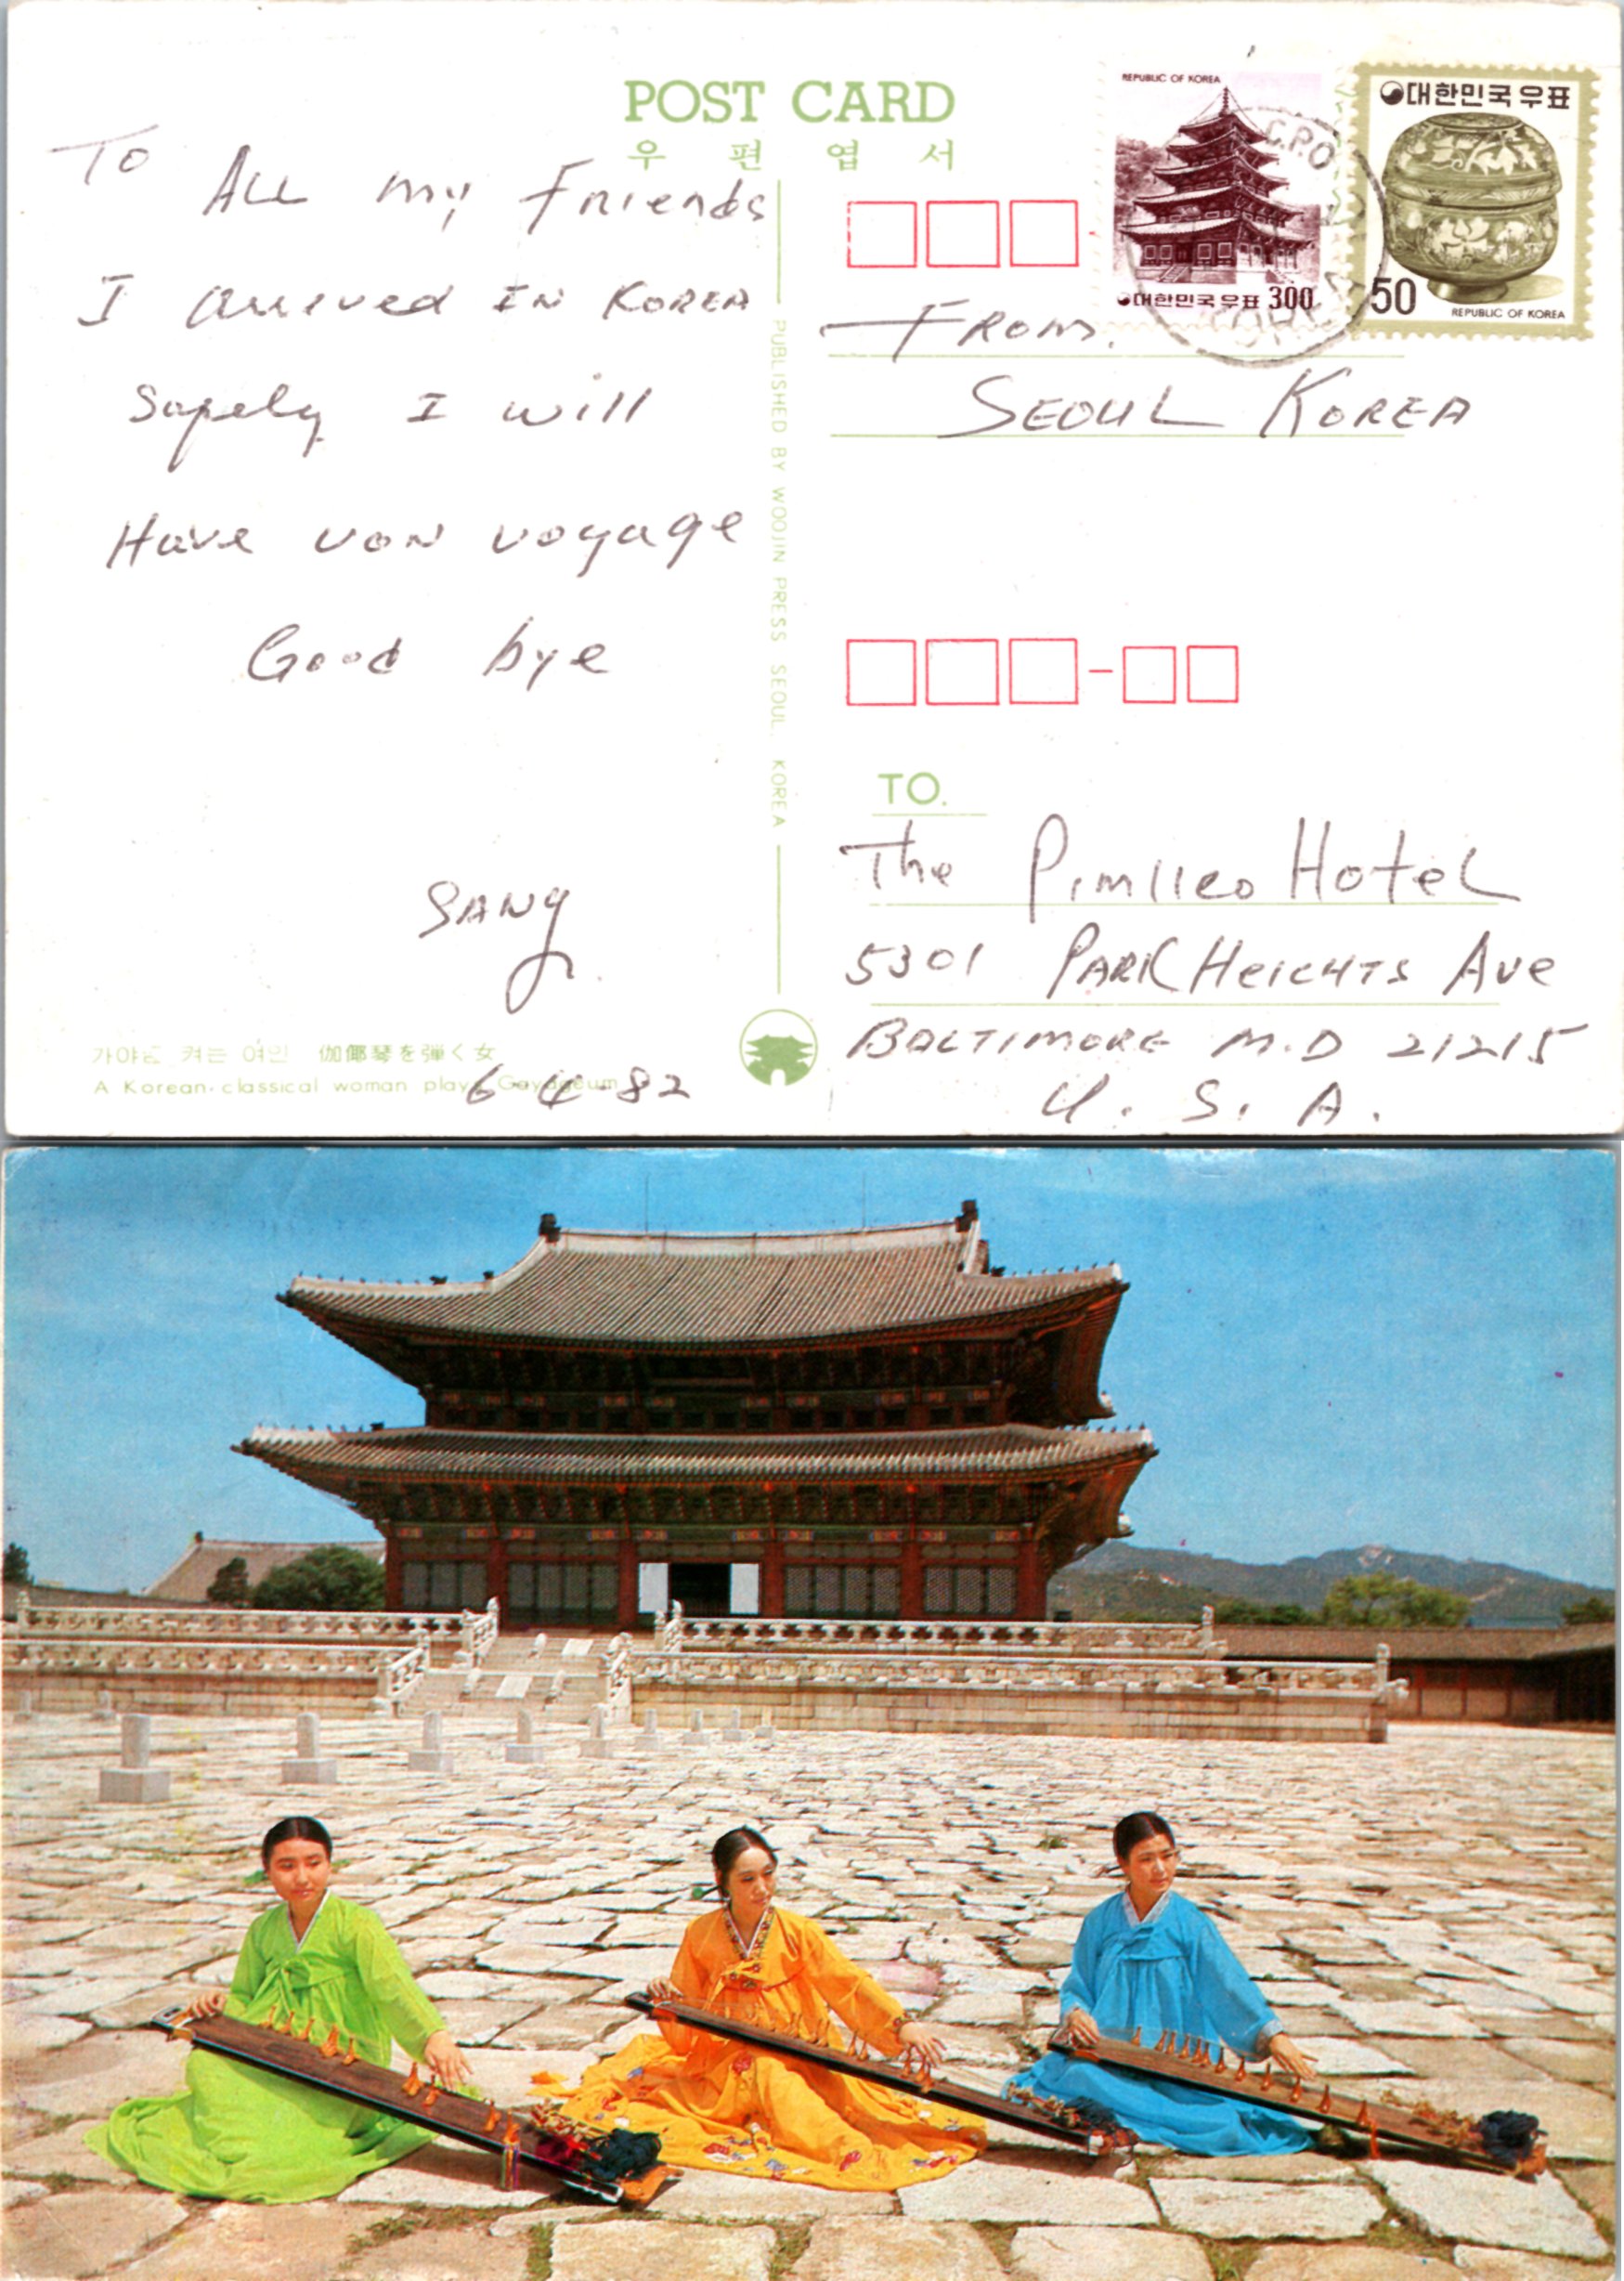 POST CARD
우편엽서
To
ALL my Friends
I arrived IN KOREA
Safely I will
Have von voyage
Good bye
SANG
6-4-82
가야금 켜는 여인 伽倻琴を弾く女
A Korean classical woman plays Gayageum
PUBLISHED BY WOOJIN PRESS SEOUL. KOREA
REPUBLIC OF KOREA
대한민국우표 300
대한민국우표
50
REPUBLIC OF KOREA
C.P.O
FROM.
SEOUL KOREA
TO.
The Pimlico Hotel
5301 PARK HEIGHTS Ave
BALTIMORE M.D 21215
U. S. A.